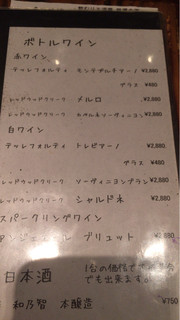 ボトルワイン
赤ワイン
テッレフォルティ モンテプルチアーノ ¥2,880
グラス ¥480
レッドウッドクリーク メルロ ¥2,880
レッドウッドクリーク カベルネソーヴィニヨン ¥2,880
白ワイン
テッレフォルティ トレビアーノ ¥2,880
グラス ¥480
レッドウッドクリーク ソーヴィニヨンブラン ¥2,880
レッドウッドクリーク シャルドネ ¥2,880
スパークリングワイン
ブリュット ¥2,880
日本酒
でも出来ます。
和乃智 本醸造 ¥750